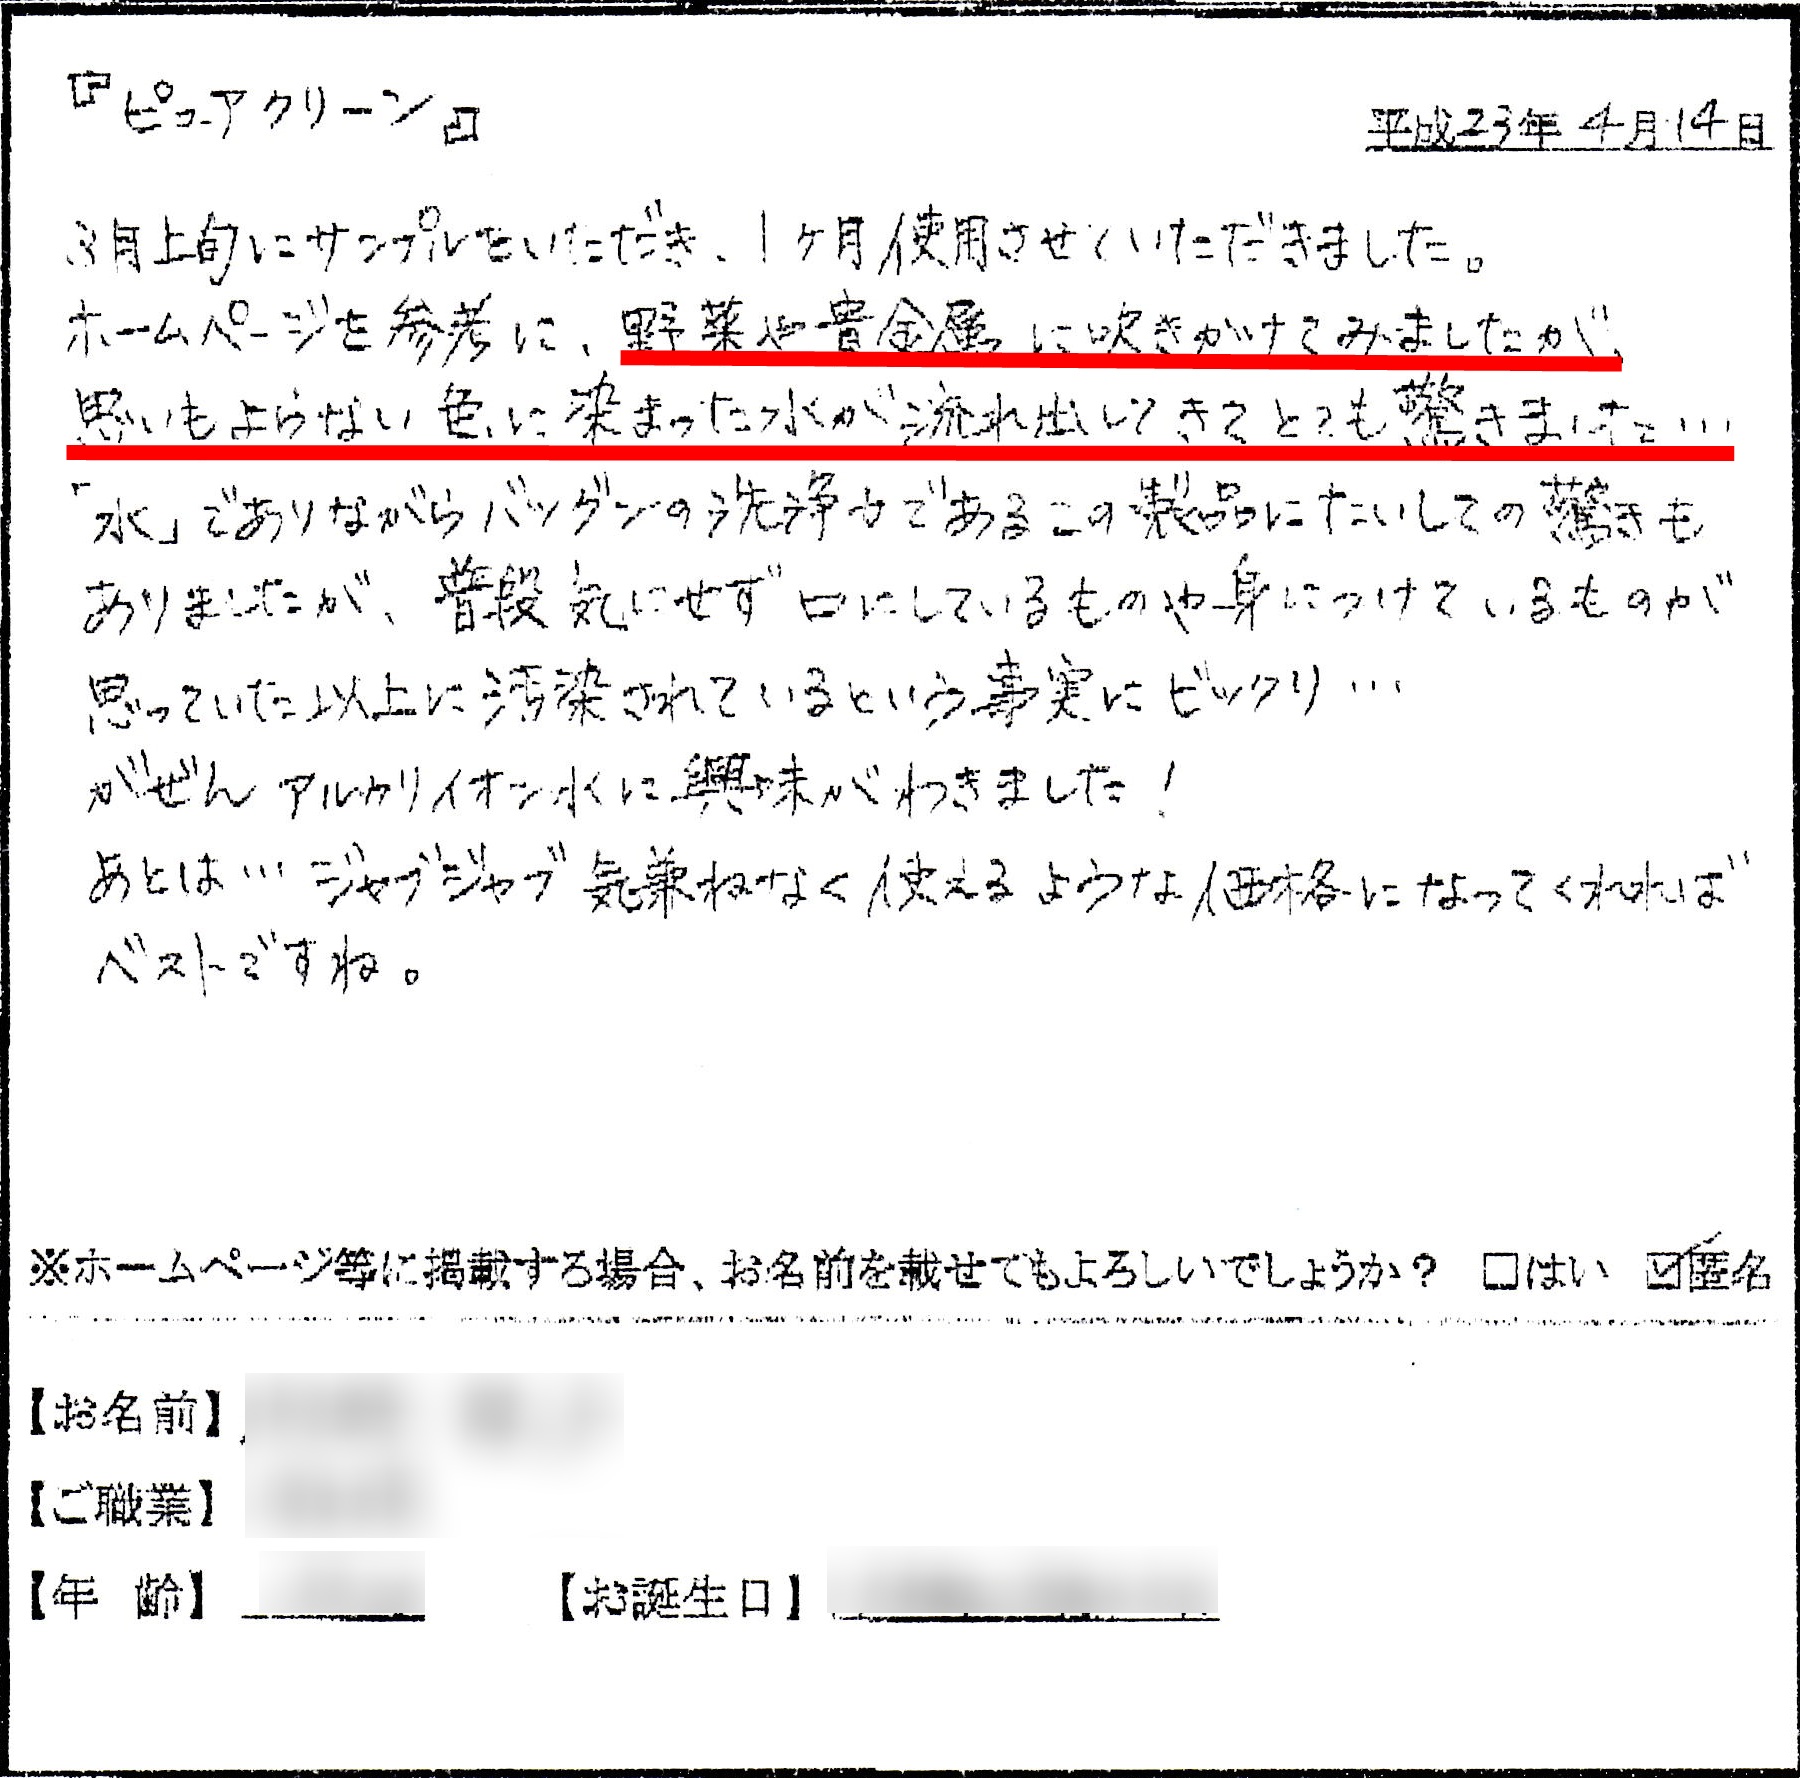 『ピュアクリーン』
平成23年 4月14日
3月上旬にサンプルをいただき、1ヶ月使用させていただきました。
ホームページを参考に、野菜や貴金属に吹きがけてみましたが、
思いもよらない色に染まった水が流れ出してきてとても驚きました…
「水」でありながらバツグンの洗浄力であるこの製品にたいしての驚きも
ありましたが、普段気にせず口にしているものや身につけているものが
思っていた以上に汚染されているという事実にビックリ…
がぜんアルカリイオン水に興味がわきました!
あとは…ジャブジャブ気兼ねなく使えるような価格になってくれれば
ベストですね。
※ホームページ等に掲載する場合、お名前を載せてもよろしいでしょうか? □はい ☑匿名
【お名前】
【ご職業】
【年 齢】 【お誕生日】